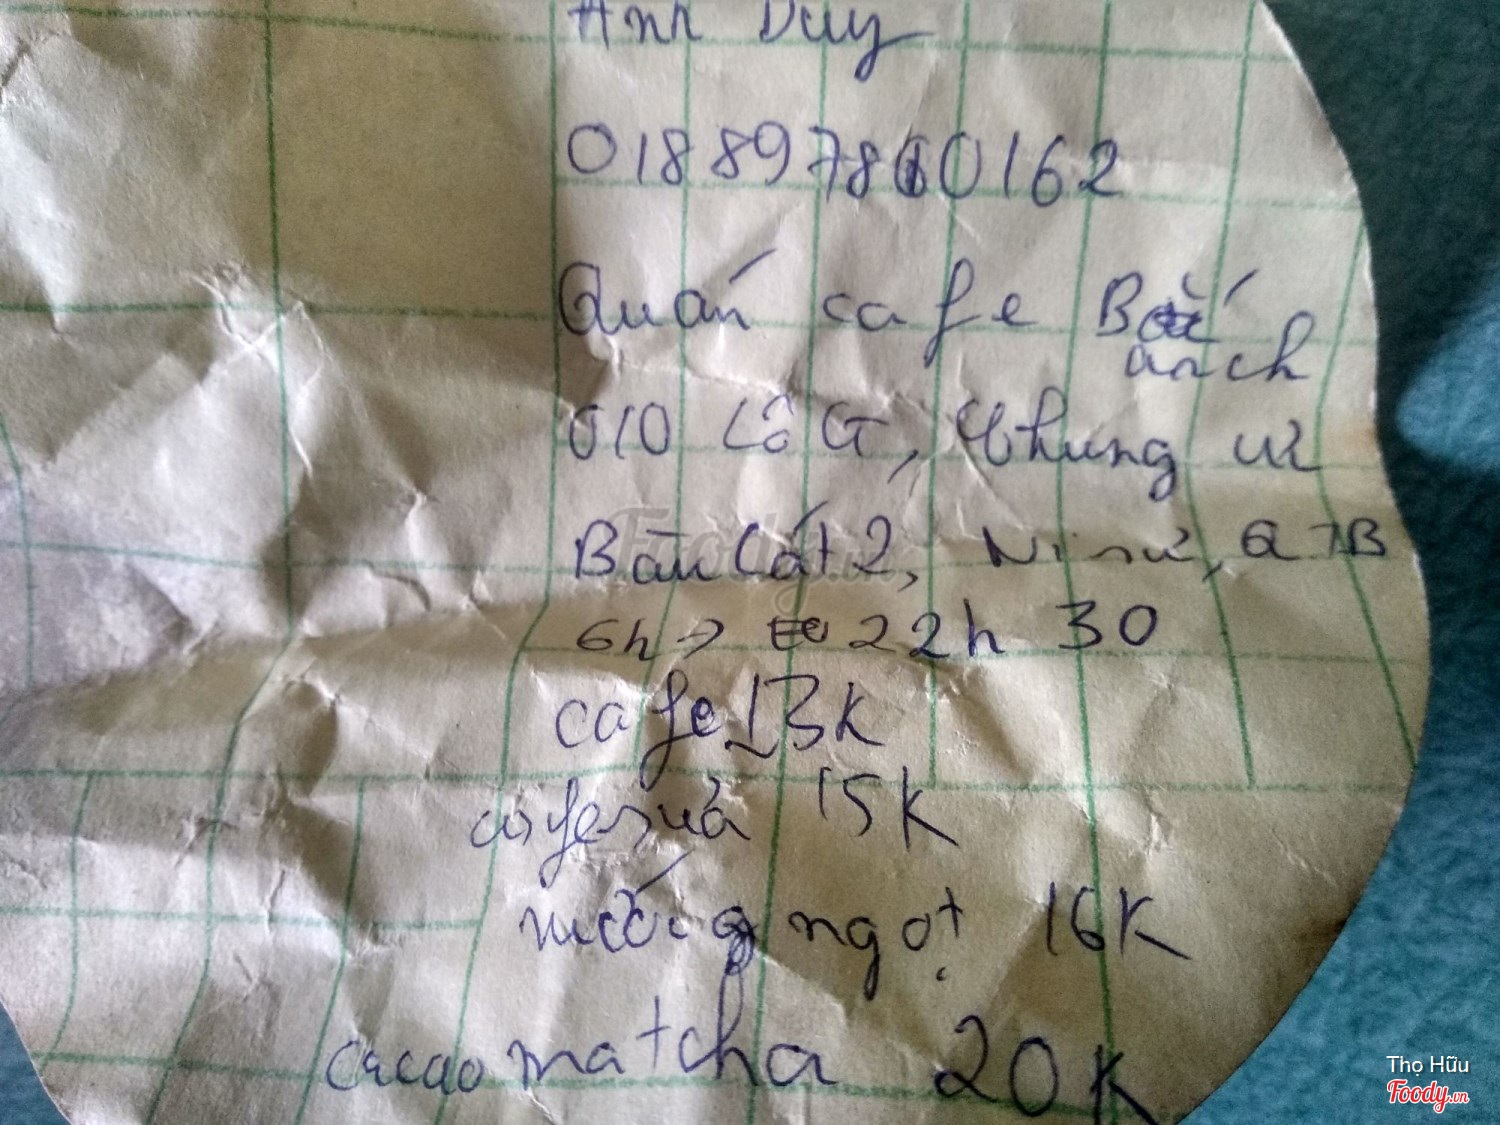 Anh Duy
01889780162
Quán cafe
anch
010 Lô G, Chung cư
Bàu Cát 2, Ni sư, Q TB
6h → 22h 30
cafe 13K
cafe sữa 15K
nước ngọt 16K
cacao matcha 20K
Foody.vn
Thọ Hữu
Foody.vn